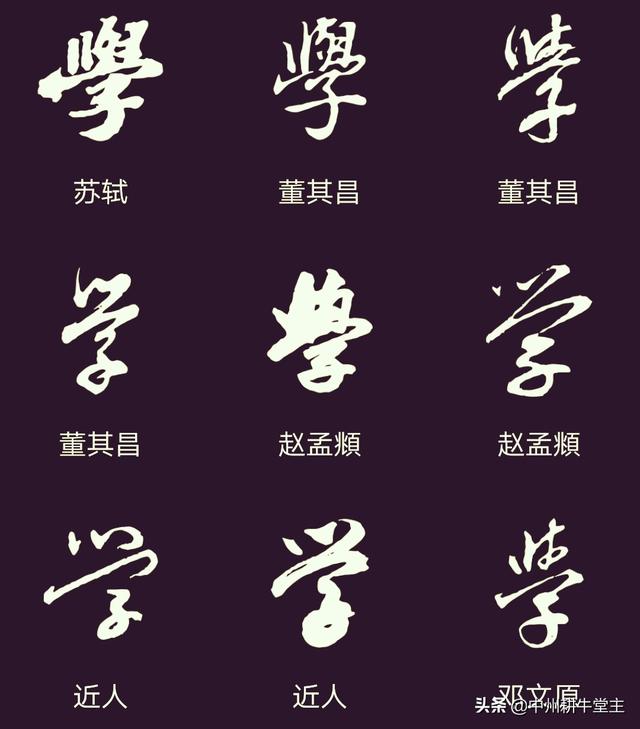 學 學 学
苏轼 董其昌 董其昌
学 學 学
董其昌 赵孟頫 赵孟頫
学 学 学
近人 近人 邓文原
头条 @中州耕牛堂主